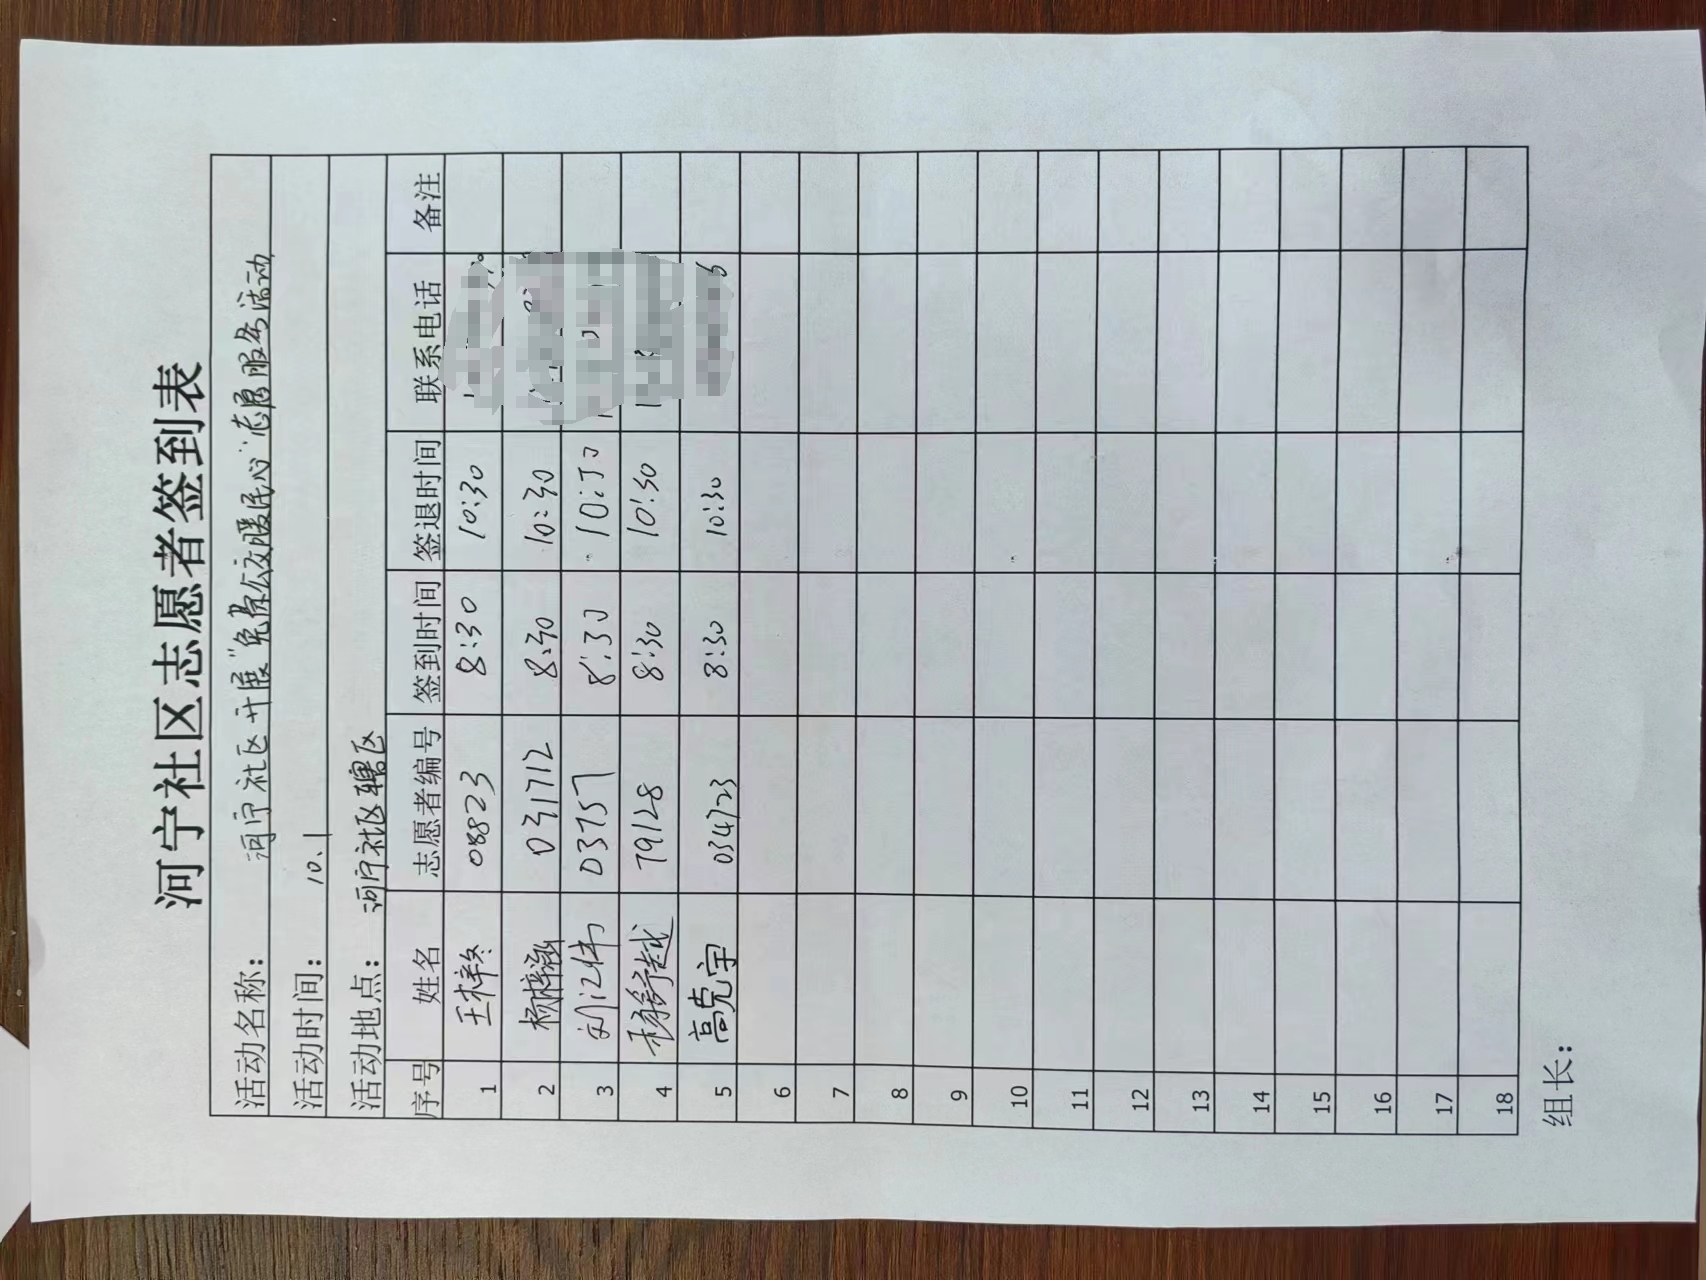 河宁社区志愿者签到表
活动名称： 河宁社区开展"免费公交暖民心"志愿服务活动
活动时间： 10.1
活动地点： 河宁社区辖区
序号 姓名 志愿者编号 签到时间 签退时间 联系电话 备注
1 王梓 08823 8:30 10:30
2 杨梓涵 031712 8:30 10:30
3 刘江伟 03757 8:30 10:30
4 杨舒越 79128 8:30 10:30
5 高克宇 034723 8:30 10:30
6
7
8
9
10
11
12
13
14
15
16
17
18
组长：